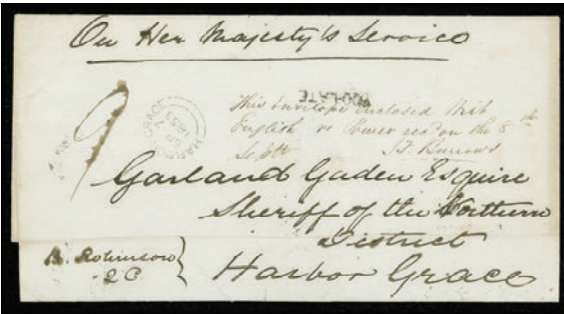 On Her Majesty's Service
TOO-LATE
HARBOR GRACE
SP 7
1855
This envelope enclosed Writ
English vs Power recd on the 8th
Septr
Garland Gaden Esquire
Sheriff of the Northern
District
Harbor Grace
B. Robinson
QC